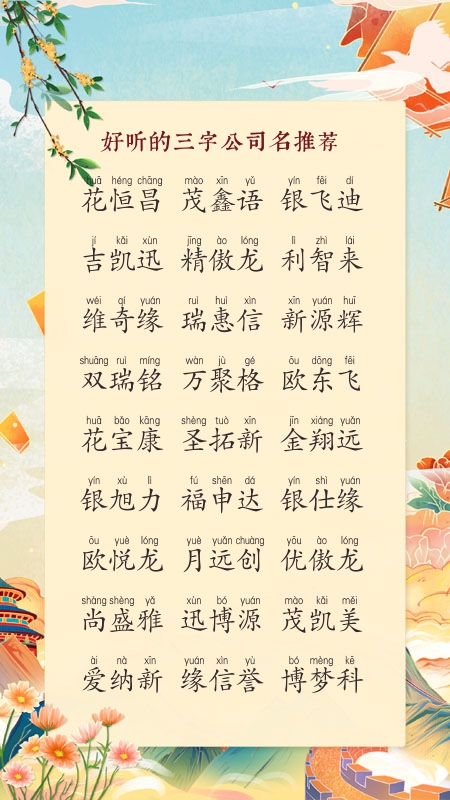 好听的三字公司名推荐
huā héng chāng mào xīn yǔ yín fēi dí
花恒昌 茂鑫语 银飞迪
jí kǎi xùn jīng ào lóng lì zhì lái
吉凯迅 精傲龙 利智来
wéi qí yuán ruì huì xìn xīn yuán huī
维奇缘 瑞惠信 新源辉
shuāng ruì míng wàn jù gé ōu dōng fēi
双瑞铭 万聚格 欧东飞
huā bǎo kāng shèng tuò xīn jīn xiáng yuǎn
花宝康 圣拓新 金翔远
yín xù lì fú shēn dá yín shì yuán
银旭力 福申达 银仕缘
ōu yuè lóng yuè yuǎn chuàng yōu ào lóng
欧悦龙 月远创 优傲龙
shàng shèng yǎ xùn bó yuán mào kǎi měi
尚盛雅 迅博源 茂凯美
ài nà xīn yuán xìn yù bó mèng kē
爱纳新 缘信誉 博梦科